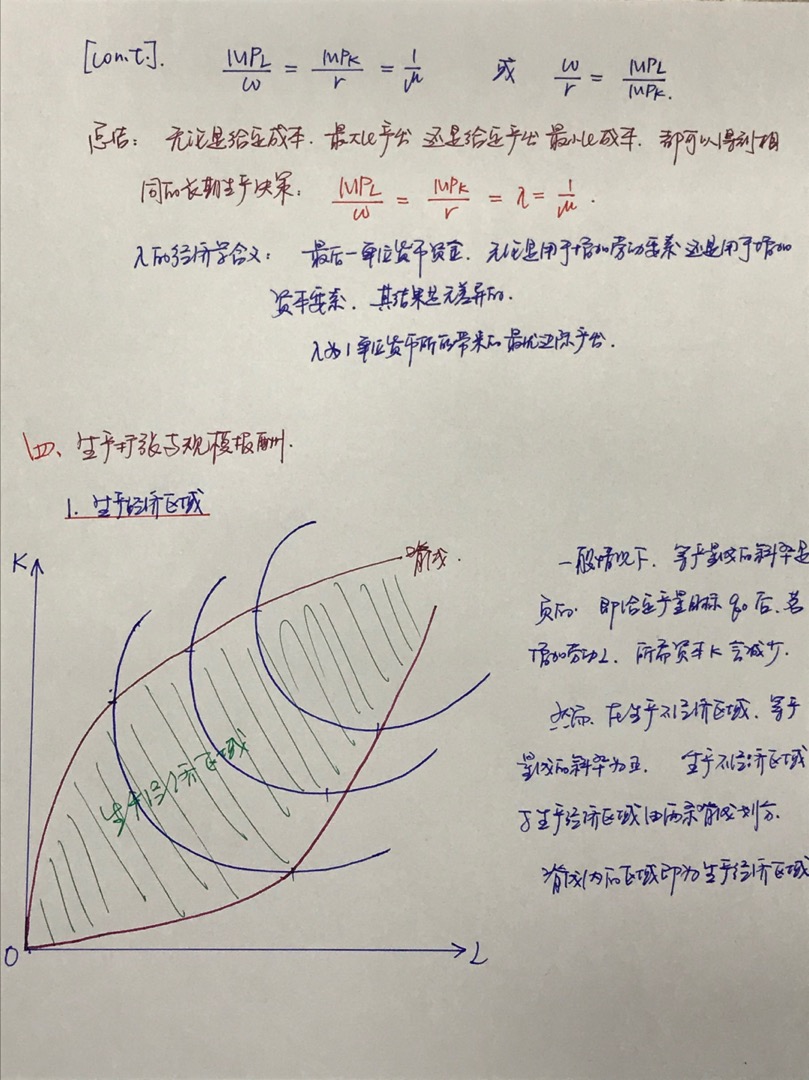 [cont.]. MPL/ω = MPK/r = 1/μ 或 ω/r = MPL/MPK.
总结: 无论是给定成本. 最大化产出 还是给定产出 最小化成本. 都可以得到相
同的长期生产决策: MPL/ω = MPK/r = λ = 1/μ.
λ的经济学含义: 最后一单位货币资金. 无论是用于增加劳动要素 还是用于增加
资本要素. 其结果是无差异的.
λ为1单位货币所能带来的最优边际产出.
四、生产扩张与规模报酬.
1. 生产经济区域
K
脊线.
生产经济区域
O
L
一般情况下. 等产量线的斜率是
负的. 即给定产量目标 q0 后. 若
增加劳动L. 所需资本K会减少.
然而. 在生产不经济区域. 等产
量线的斜率为正. 生产不经济区域
与生产经济区域由两条脊线划分.
脊线内的区域即为生产经济区域